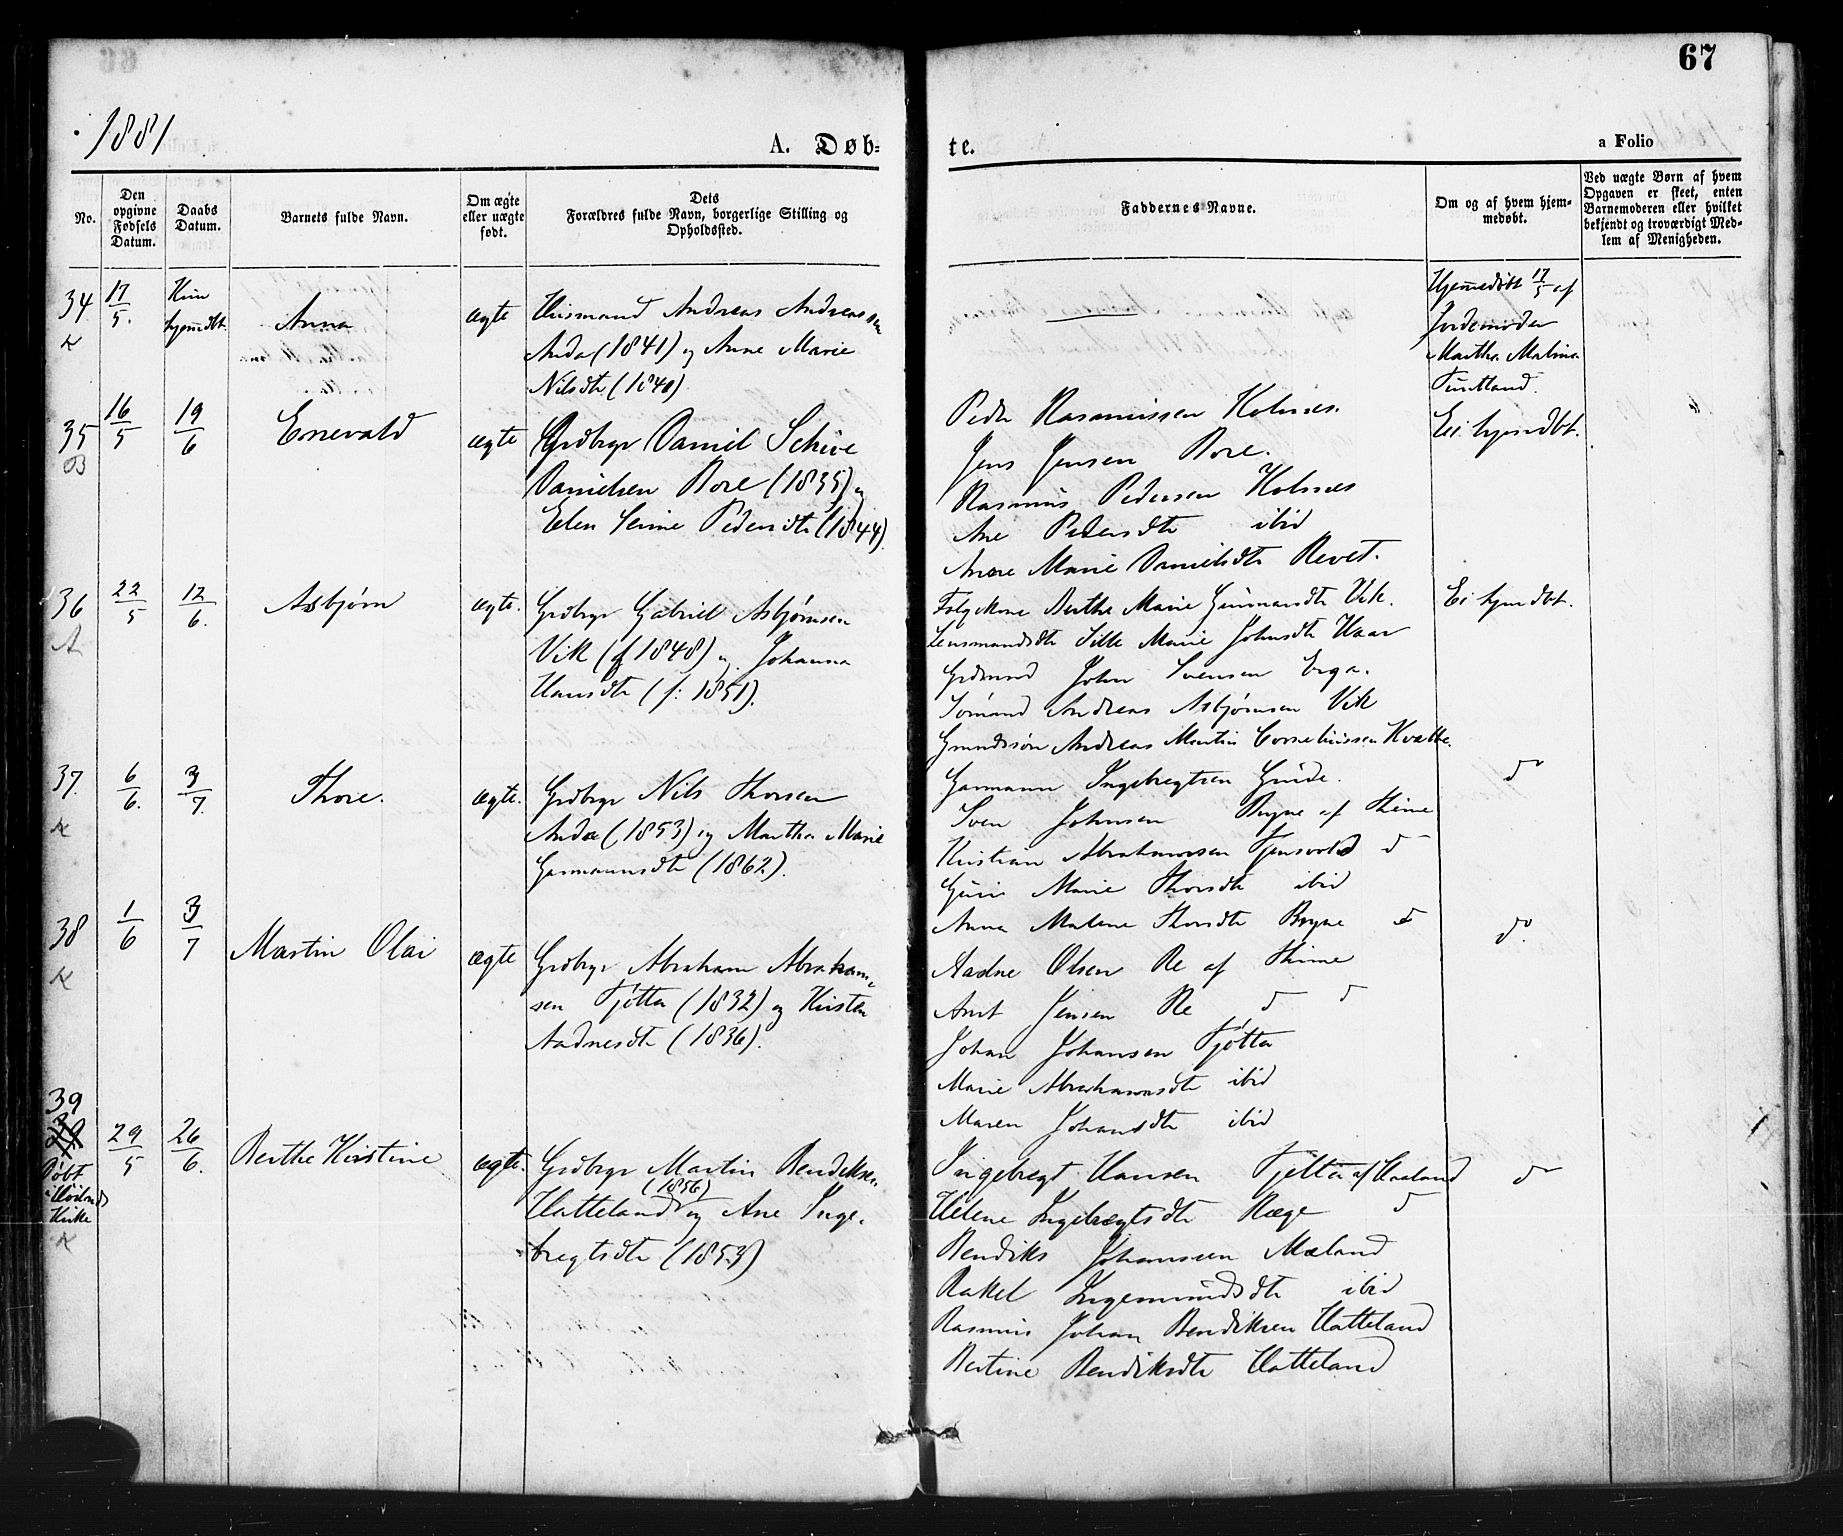 67
1881
A. Døb-
te.
a Folio
No.
Den opgivne Fødsels Datum.
Daabs Datum.
Barnets fulde Navn.
Om ægte eller uægte født.
Dets Forældres fulde Navn, borgerlige Stilling og Opholdssted.
Faddernes Navne.
Om og af hvem hjemmedøbt.
Ved uægte Børn af hvem Opgaven er skeet, enten Barnemoderen eller hvilket bekjendt og troværdigt Medlem af Menigheden.
34
17/5.
Kun hjemdbt.
Anna
ægte
Huusmand Andreas Andreassen
Anda (1841) og Anne Marie
Nilsdtr (1840)
Hjemmedøbt 17/5 af
Jordemoder
Martha Malina
Tuntland.
35
16/5
19/6
Enevald
ægte
Grdbrgr Daniel Schive
Danielsen Bore (1835) og
Elen Serine Pedersdtr (1844).
Peder Rasmussen Holnæs.
Jens Jensen Bore.
Rasmus Pedersen Holnæs
Ane Pedersdtr ibid
Anne Marie Danielsdtr Revet.
Ei hjemdbt.
36
22/5
12/6.
Asbjørn
ægte.
Grdbrgr Gabriel Asbjørnsen
Vik (f 1848) og Johanna
Hansdtr (f: 1851).
Folgekone Berthe Marie Gunmarsdtr Vik.
Lensmandsdtr Sille Marie Johnsdtr Haar
Grdmand John Svensen Erga.
Sømand Andreas Asbjørnsen Vik
Grmandssøn Andreas Martin Corneliussen Kvalbe.
Ei hjemdbt.
37.
6/6.
3/7.
Thore.
ægte.
Grdbrgr Nils Thorsen
Anda (1853) og Martha Marie
Garmannsdtr (1862).
Garmann Ingebregtsen Grude.
Sven Johnsen Bryne af Thime
Kristian Abrahamsen Tjensvold do
Guri Marie Thorsdtr ibid
Anna Malene Thorsdtr Bryne do
do
38
1/6
3/7
Martin Olai
ægte
Grdbrgr Abraham Abraham-
sen Tjøtta (1832) og Kirsten
Aadnesdtr (1836).
Aadne Olsen Re af Thime
Arnt Jensen Re do do
Johan Johansen Tjøtta
Marie Abrahamsdtr ibid
Maren Johansdtr ibid
do.
39
29/5
26/6.
Døbt
i Høiland
Kirke
Berthe Kirstine
ægte.
Grdbrgr Martin Bendiksen
(1856)
Hatteland og Ane Inge-
bregtsdtr (1853)
Ingebregt Hansen Tjøtta af Haaland
Helene Ingebregtsdtr Ræge do
Bendiks Johansen Mæland
Rakel Ingemundsdtr ibid
Rasmus Johan Bendiksen Hatteland
Bertine Bendiksdtr Hatteland
do